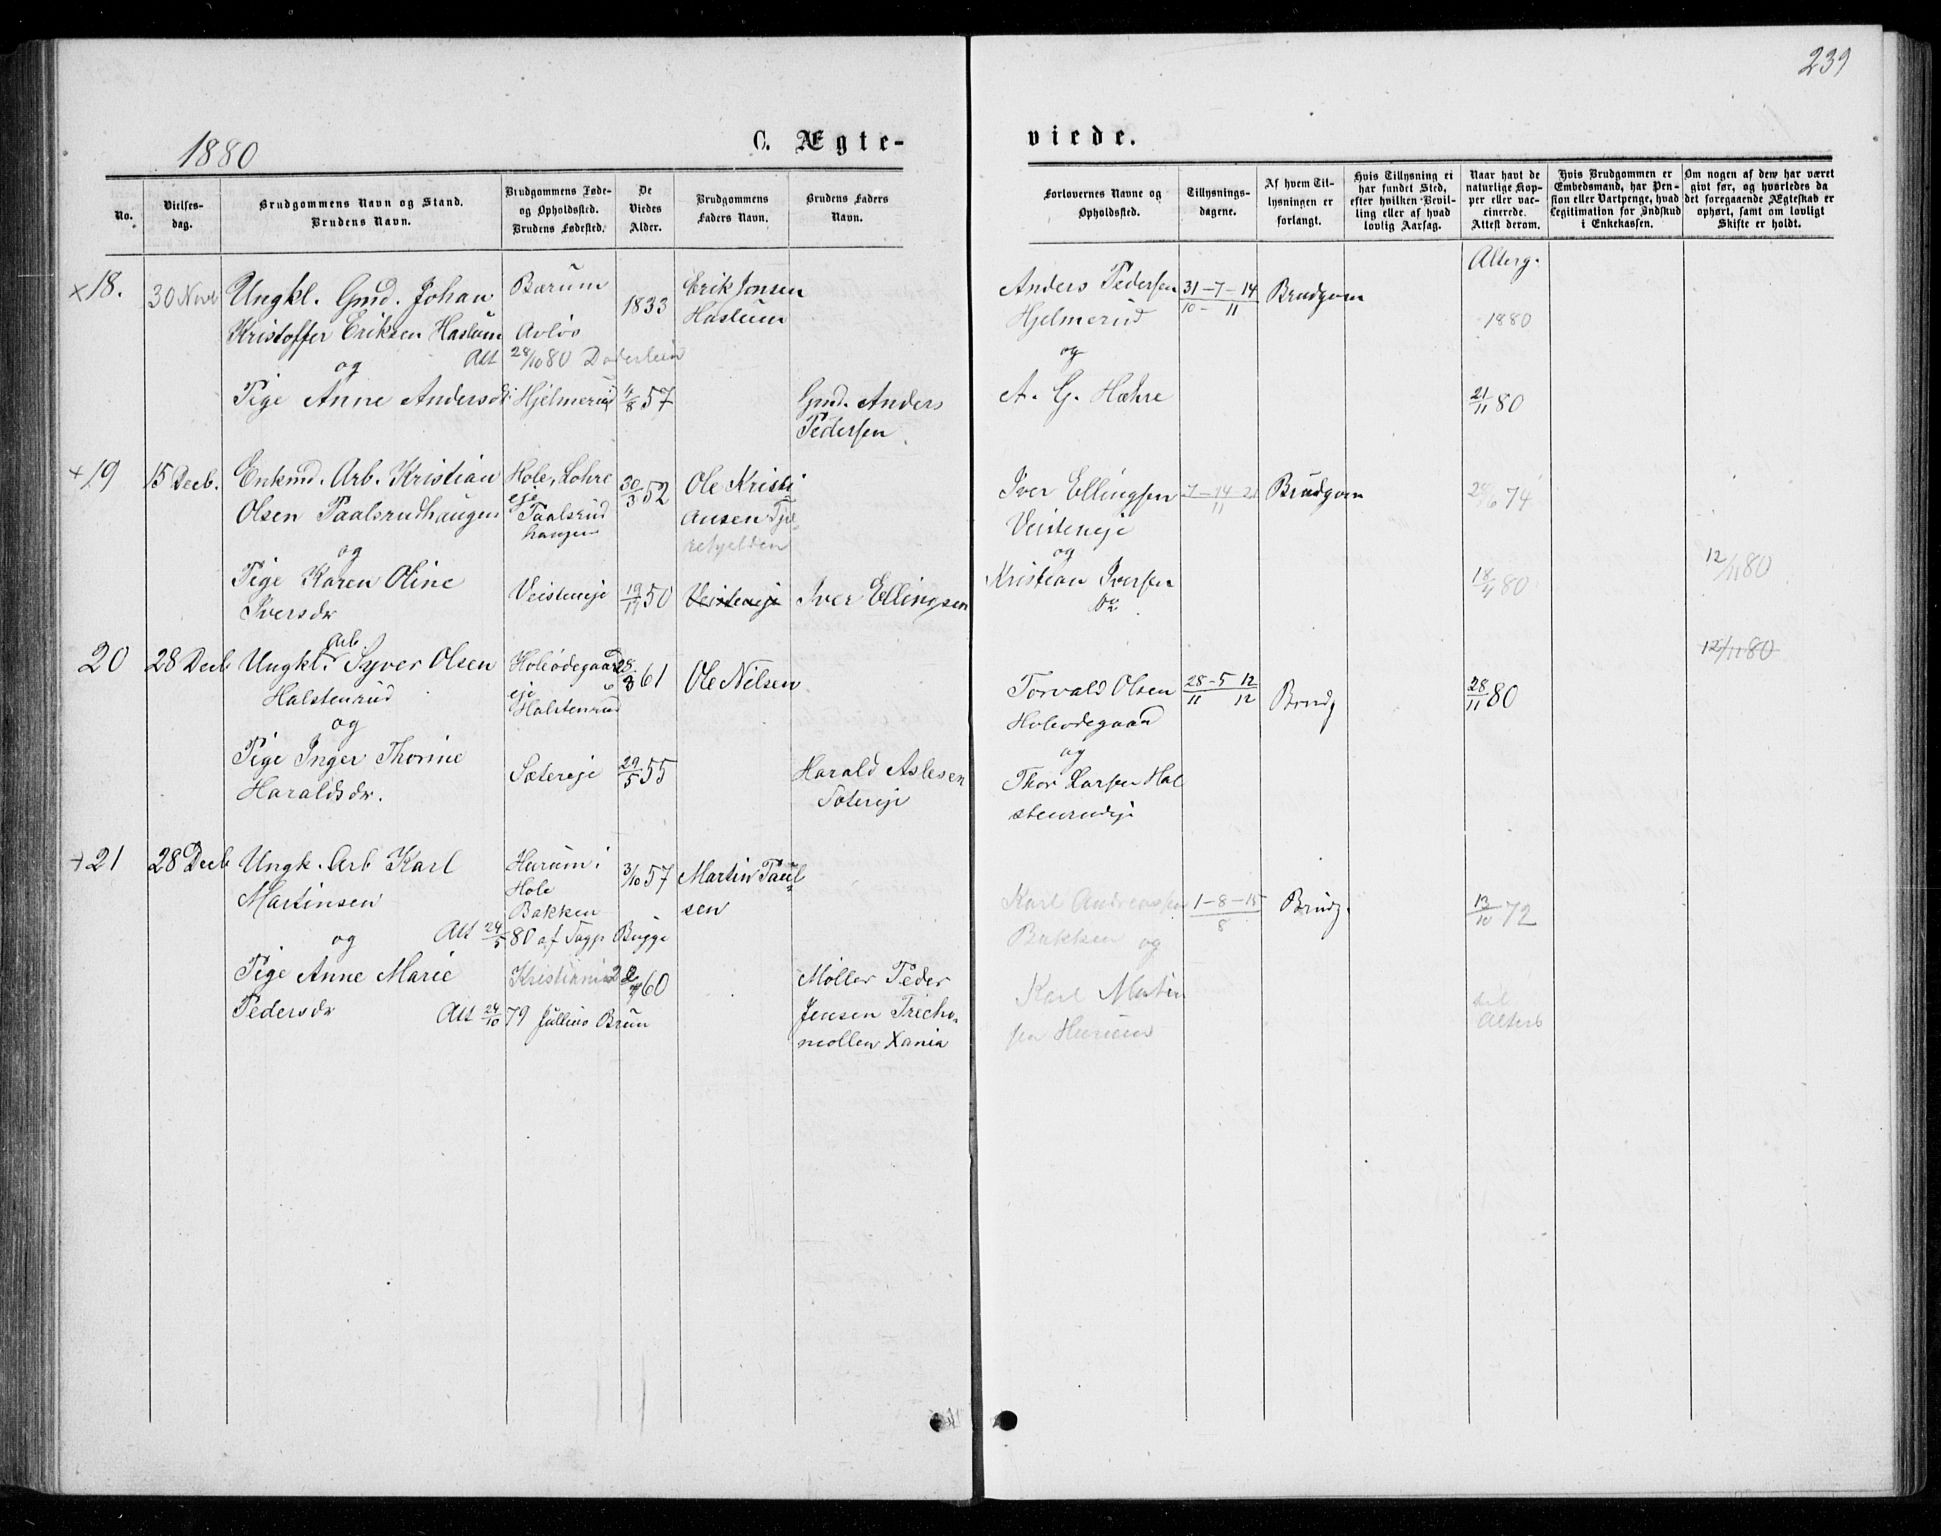 239
1880
C. Ægte-
viede.
No.
Vielses-
dag.
Brudgommens Navn og Stand.
Brudens Navn.
Brudgommens Føde-
og Opholdssted.
Brudens Fødested.
De
Viedes
Alder.
Brudgommens
Faders Navn.
Brudens Faders
Navn.
Forlovernes Navne og
Opholdssted.
Tillysnings-
dagene.
Af hvem Til-
lysningen er
forlangt.
Hvis Tillysning ei
har fundet Sted,
efter hvilken Bevil-
ling eller af hvad
lovlig Aarsag.
Naar havt de
naturlige Kop-
per eller vac-
cinerede.
Attest derom.
Hvis Brudgommen er
Embedsmand, har Pen-
sion eller Vartpenge, hvad
Legitimation for Indskud
i Enkekassen.
Om nogen af dem har været
givt før, og hvorledes da
det foregaaende Ægteskab er
ophørt, samt om lovligt
Skifte er holdt.
Alterg.
×18.
30 Novb
Ungkl. Gmd. Johan
Kristoffer Eriksen Haslum
Bærum
Avløs
1833
Erik Jonsen
Haslum
Anders Pedersen
Hjelmerud
31-7-14
10 - 11
Brudgom
1880
Att 28/10 80 Døderlein
og
Pige Anne Andersd.
Hjelmerud
4/8 57
Gmd. Anders
Pedersen
og
A. G. Hæhre
21/11 80
+19
15 Decb.
Enkmd. Arb. Kristian
Olsen Paalsrudhaugen
Hole, Lohre
eje
Paalsrud
haugen
30/3 52
Ole Kristi
ansen
Iver Ellingsen
Veisteneje
7-14-21
11
Brudgom
74
og
Pige Karen Oline
Iversdr
Veisteneje
19/11 50
Veisteneje
Iver Ellingsen
og
Kristian Iversen
12/11 80
18/4 80
20
28 Decb
Ungkl. Arb. Syver Olsen
Halstenrud
Holeødegaard
eje
Halstenrud
28/3 61
Ole Nilsen
Torvald Olsen
Holeødegaard
28-5 12
11 12
Brudg
28/11 80
12/11 80
og
Pige Inger Thorine
Haraldsdr.
Sætereje
29/5 55
Harald Aslesen
Sætereje
og
Thor Larsen Hal
stenrudeje
+21
28 Decb
Ungk. Arb Karl
Martinsen
Hurum i
Hole
Bakken
3/10 57
Martin Paul
sen
Karl Andreassen
Bakken og
1-8-15
8
Brudg.
13/10 72
og
Att 24/5 80 af Sogp Bugge
Pige Anne Marie
Pedersdr
Kristiania
60
Møller Peder
Jensen
møllen Xania
Karl Martin
sen
Att 24/10 79 Jullius Brun